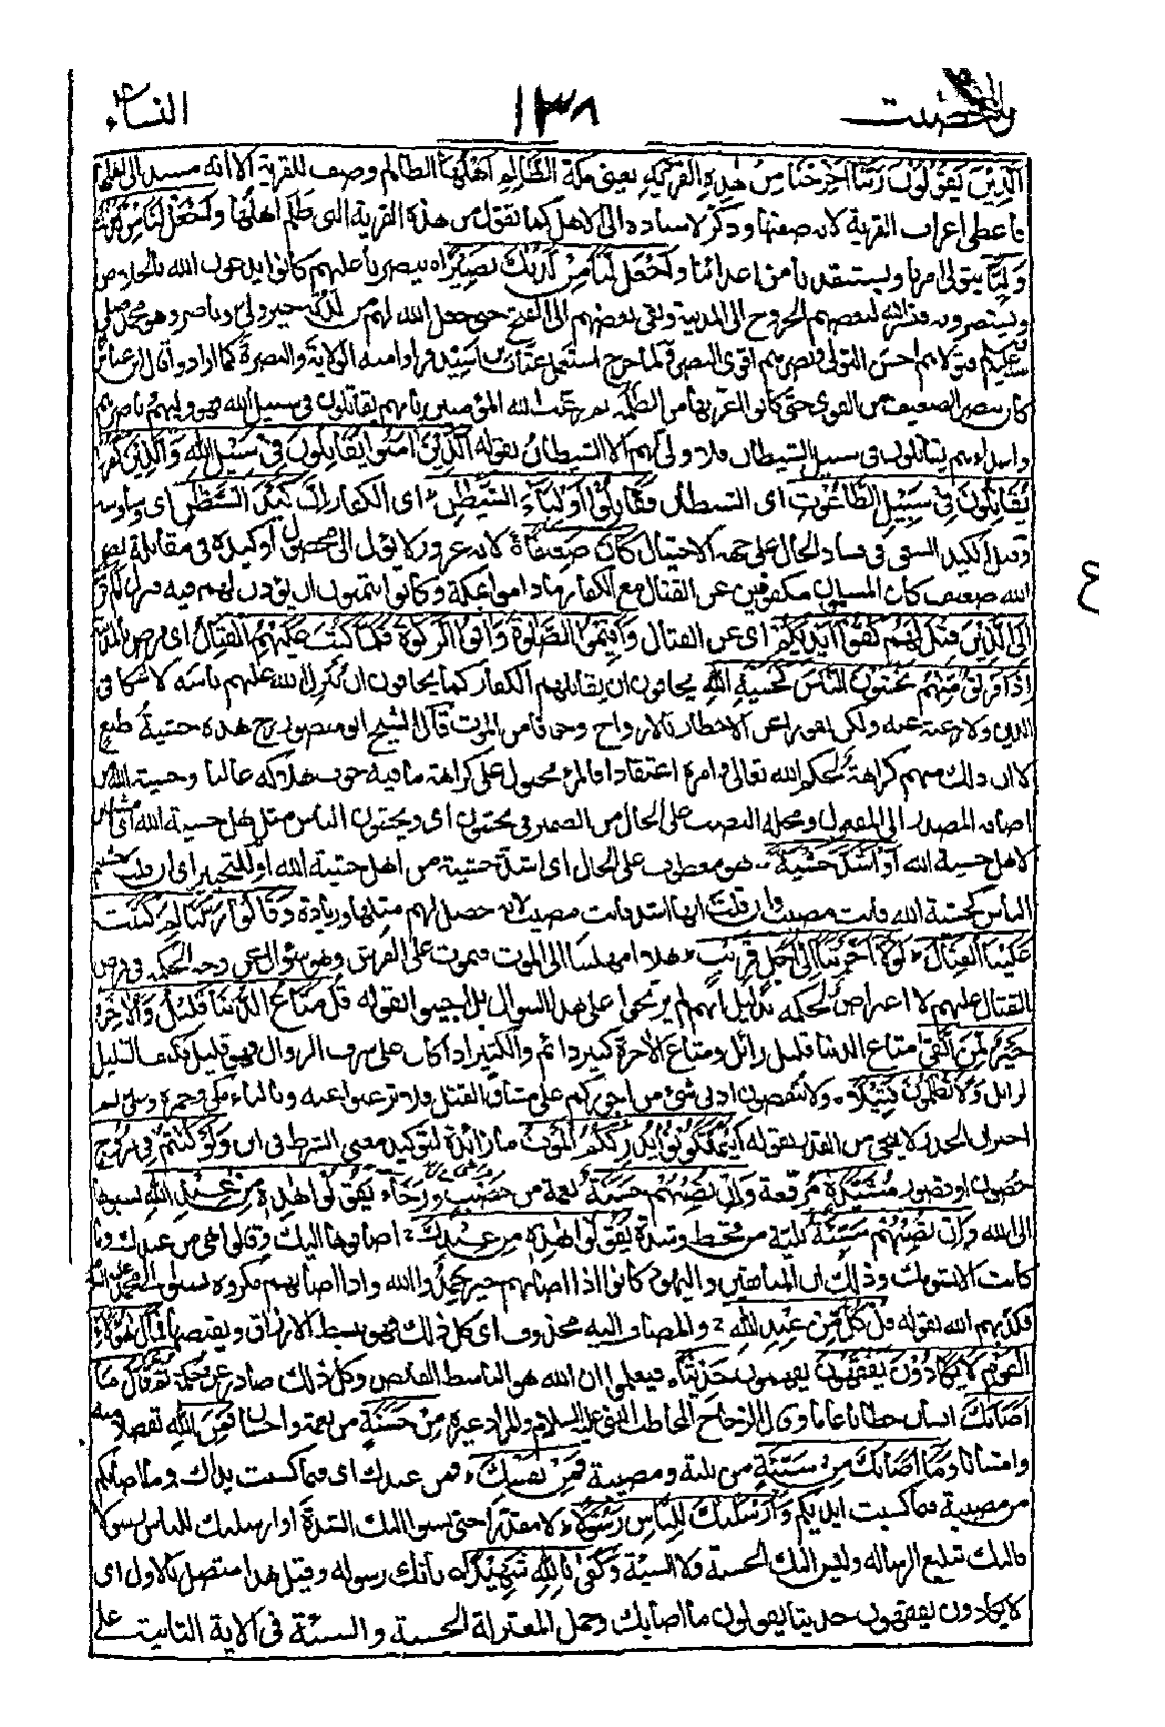 والمحصنت ١٣٨ النساء
الَّذِيْنَ يَقُوْلُوْنَ رَبَّنَا اَخْرِجْنَا مِنْ هٰذِهِ الْقَرْيَةِ يعني مكة الظَّالِمِ اَهْلُهَا الظالم وصف للقرية الا انه مسند الى اهلها
فاعطى اعراب القرية لانه صفتها وذكر لاسناده الى الاهل كما تقول من هذه القرية التى ظلم اهلها وَاجْعَلْ لَّنَا مِنْ لَّدُنْكَ
وَلِيًّا يتولى امرنا ويستنقذنا من اعدائنا وَاجْعَلْ لَّنَا مِنْ لَّدُنْكَ نَصِيْرًا ينصرنا عليهم كانوا يدعون الله بالخلاص
ويستنصرونه فيسر الله لبعضهم الخروج الى المدينة وبقى بعضهم الى الفتح حتى جعل الله لهم من لدنه خير ولي وناصر وهو محمد صلى
الله عليه وسلم فتولاهم احسن التولى ونصرهم اقوى النصر ولما خرج استعمل عتاب بن اسيد فراوا منه الولاية والنصرة كما ارادوا قال ابن عباس
كان ينصر الضعيف من القوى حتى كانوا اعز بها من الظلمة ثم رغب الله المؤمنين بانهم يقاتلون فى سبيل الله فهو وليهم وناصرهم
واعداؤهم يقاتلون فى سبيل الشيطان فلا ولى لهم الا الشيطان بقوله اَلَّذِيْنَ اٰمَنُوْا يُقَاتِلُوْنَ فِيْ سَبِيْلِ اللهِ وَالَّذِيْنَ كَفَرُوْا
يُقَاتِلُوْنَ فِيْ سَبِيْلِ الطَّاغُوْتِ اى الشيطان فَقَاتِلُوْا اَوْلِيَاءَ الشَّيْطٰنِ اى الكفار اِنَّ كَيْدَ الشَّيْطٰنِ اى وساوسه
وقيل الكيد السعى فى فساد الحال على جهة الاحتيال كَانَ ضَعِيْفًا لانه غرور لا يؤل الى محصول او كيده فى مقابلة نصر
الله ضعيف كان المسلمون مكفوفين عن القتال مع الكفار ما داموا بمكة وكانوا يتمنون ان يؤذن لهم فيه فنزل اَلَمْ تَرَ
اِلَى الَّذِيْنَ قِيْلَ لَهُمْ كُفُّوْا اَيْدِيَكُمْ اى عن القتال وَاَقِيْمُوا الصَّلٰوةَ وَاٰتُوا الزَّكٰوةَ فَلَمَّا كُتِبَ عَلَيْهِمُ الْقِتَالُ اى فرض بالمدينة
اِذَا فَرِيْقٌ مِّنْهُمْ يَخْشَوْنَ النَّاسَ كَخَشْيَةِ اللهِ يخافون ان يقاتلهم الكفار كما يخافون ان ينزل الله عليهم باسه لا شكا فى
الدين ولا رغبة عنه ولكن نفورا عن الاخطار بالارواح وخوفا من الموت قال الشيخ ابو منصور رح هذه خشية طبع
لا ان ذلك منهم كراهة لحكم الله تعالى وامره اعتقادا فالمرء مجبول على كراهة ما فيه خوف هلاكه غالبا وخشية الله من
اضافة المصدر الى المفعول ومحله النصب على الحال من الضمير فى يخشون اى يخشون الناس مثل اهل خشية الله اى مشبهين
لاهل خشية الله اَوْ اَشَدَّ خَشْيَةً هو معطوف على الحال اى اشد خشية من اهل خشية الله او للتخيير اى ان قلت خشيتهم
الناس كخشية الله فانت مصيب وان قلت انها اشد فانت مصيب لانه حصل لهم مثلها وزيادة وَقَالُوْا رَبَّنَا لِمَ كَتَبْتَ
عَلَيْنَا الْقِتَالَ لَوْلَا اَخَّرْتَنَا اِلٰى اَجَلٍ قَرِيْبٍ هلا امهلتنا الى الموت فنموت على الفرش وهو سؤال عن وجه الحكمة فى فرض
القتال عليهم لا اعتراض لحكمه بدليل انهم لم يوبخوا على هذا السؤال بل اجيبوا بقوله قُلْ مَتَاعُ الدُّنْيَا قَلِيْلٌ وَالْاٰخِرَةُ
خَيْرٌ لِّمَنِ اتَّقٰى متاع الدنيا قليل زائل ومتاع الاخرة كثير دائم والكثير اذا كان على شرف الزوال فهو قليل فكيف القليل
الزائل وَلَا تُظْلَمُوْنَ فَتِيْلًا ولا تنقصون ادنى شئ من اجوركم على مشاق القتل فلا ترغبوا عنه وبالياء مكى وحمزة وعلى ثم
اخبر ان الحذر لا ينجى من القدر بقوله اَيْنَمَا تَكُوْنُوْا يُدْرِكْكُّمُ الْمَوْتُ ما زائدة لتوكيد معنى الشرط فى اين وَلَوْ كُنْتُمْ فِيْ بُرُوْجٍ
حصون او قصور مُّشَيَّدَةٍ مرفعة وَاِنْ تُصِبْهُمْ حَسَنَةٌ نعمة من خصب ورخاء يَّقُوْلُوْا هٰذِهٖ مِنْ عِنْدِ اللهِ نسبوها
الى الله وَاِنْ تُصِبْهُمْ سَيِّئَةٌ بلية من قحط وشدة يَّقُوْلُوْا هٰذِهٖ مِنْ عِنْدِكَ اضافوها اليك وقالوا هى من عندك وما
كانت الا بشومك وذلك ان المنافقين واليهود كانوا اذا اصابهم خير حمدوا الله واذا اصابهم مكروه نسبوه الى محمد عليه السلام
فكذبهم الله بقوله قُلْ كُلٌّ مِّنْ عِنْدِ اللهِ والمضاف اليه محذوف اى كل ذلك فهو يبسط الارزاق ويقبضها فَمَالِ هٰؤُلَاءِ
الْقَوْمِ لَا يَكَادُوْنَ يَفْقَهُوْنَ يفهمون حَدِيْثًا فيعلموا ان الله هو الباسط القابض وكل ذلك صادر عن حكمة ثم قال مَا
اَصَابَكَ يا انسان خطابا عاما وقال الزجاج المخاطب النبى عليه السلام والمراد غيره مِنْ حَسَنَةٍ من نعمة واحسان فَمِنَ اللهِ تفضلا منه
وامتنانا وَمَا اَصَابَكَ مِنْ سَيِّئَةٍ من بلية ومصيبة فَمِنْ نَّفْسِكَ فمن عندك اى فبما كسبت يداك وما اصابكم
من مصيبة فبما كسبت ايديكم وَاَرْسَلْنٰكَ لِلنَّاسِ رَسُوْلًا لا مقدرا حتى نسبوا اليك الشدة او ارسلناك للناس رسولا
فاليك تبليغ الرسالة وليس اليك الحسنة ولا السيئة وَكَفٰى بِاللهِ شَهِيْدًا بانك رسوله وقيل هذا متصل بالاول اى
لا يكادون يفقهون حديثا يقولون ما اصابك وحمل المعتزلة الحسنة والسيئة فى الاية الثانية على
ع